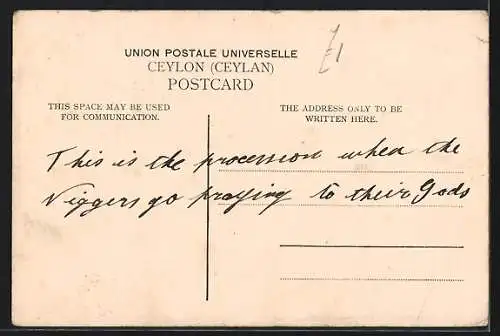 UNION POSTALE UNIVERSELLE
CEYLON (CEYLAN)
POSTCARD
THIS SPACE MAY BE USED
FOR COMMUNICATION.
THE ADDRESS ONLY TO BE
WRITTEN HERE.
This is the procession when the
Niggers go praying to their Gods